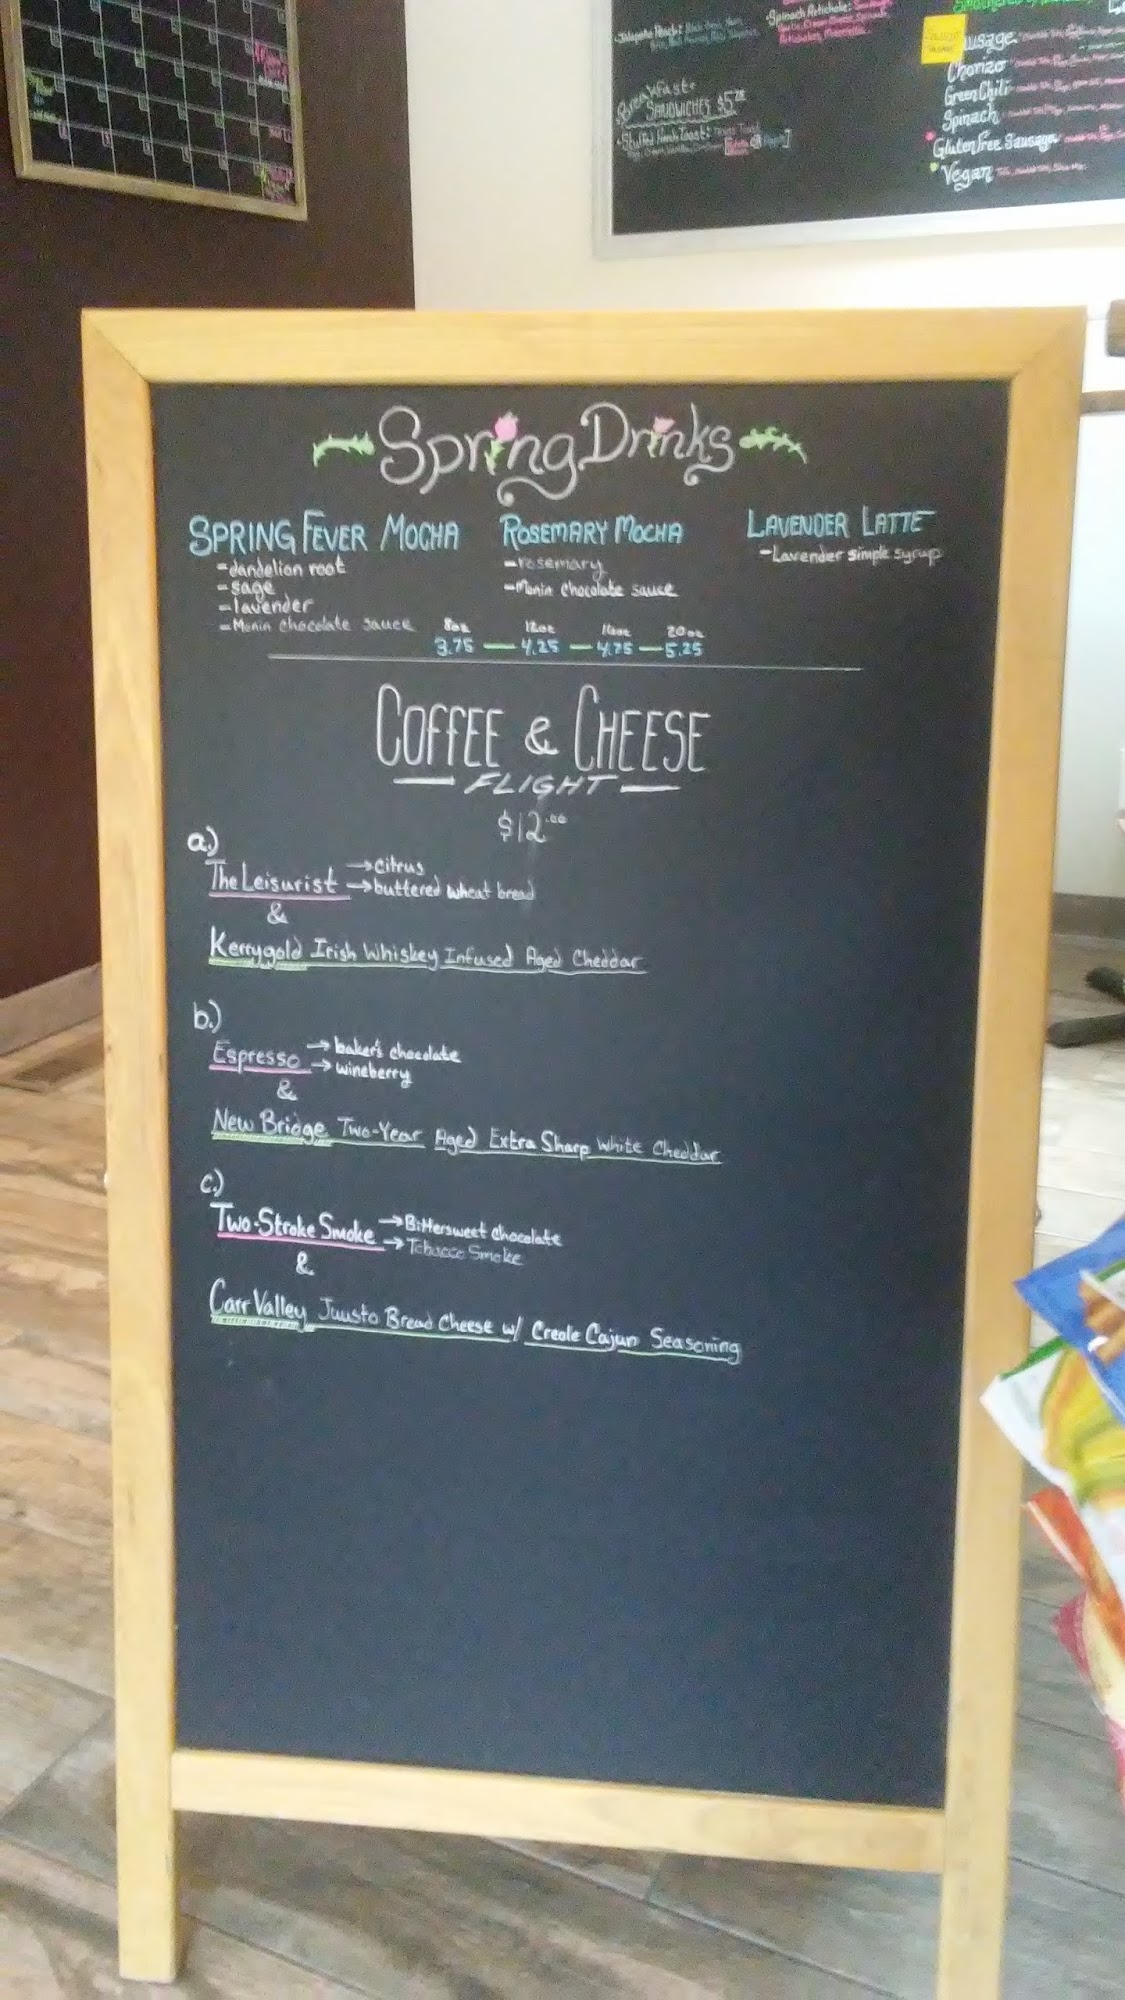 Spinach Artichoke:
Jalapeño Peach:
Breakfast
SANDWICHES $5
Stuffed French Toast:
usage
Chorizo
Green Chili
Spinach
Gluten Free Sausage
Vegan
Spring Drinks
SPRING FEVER MOCHA
-dandelion root
-sage
-lavender
-Monin chocolate sauce
ROSEMARY MOCHA
-rosemary
-Monin chocolate sauce
LAVENDER LATTE
-Lavender simple syrup
8oz 12oz 16oz 20oz
3.75 — 4.25 — 4.75 — 5.25
COFFEE & CHEESE
— FLIGHT —
$12.00
a.)
The Leisurist → citrus
→ buttered wheat bread
&
Kerrygold Irish Whiskey Infused Aged Cheddar
b.)
Espresso → baker's chocolate
→ wineberry
&
New Bridge Two-Year Aged Extra Sharp White Cheddar
c.)
Two-Stroke Smoke → Bittersweet chocolate
→ Tobacco Smoke
&
Carr Valley Juusto Bread Cheese w/ Creole Cajun Seasoning